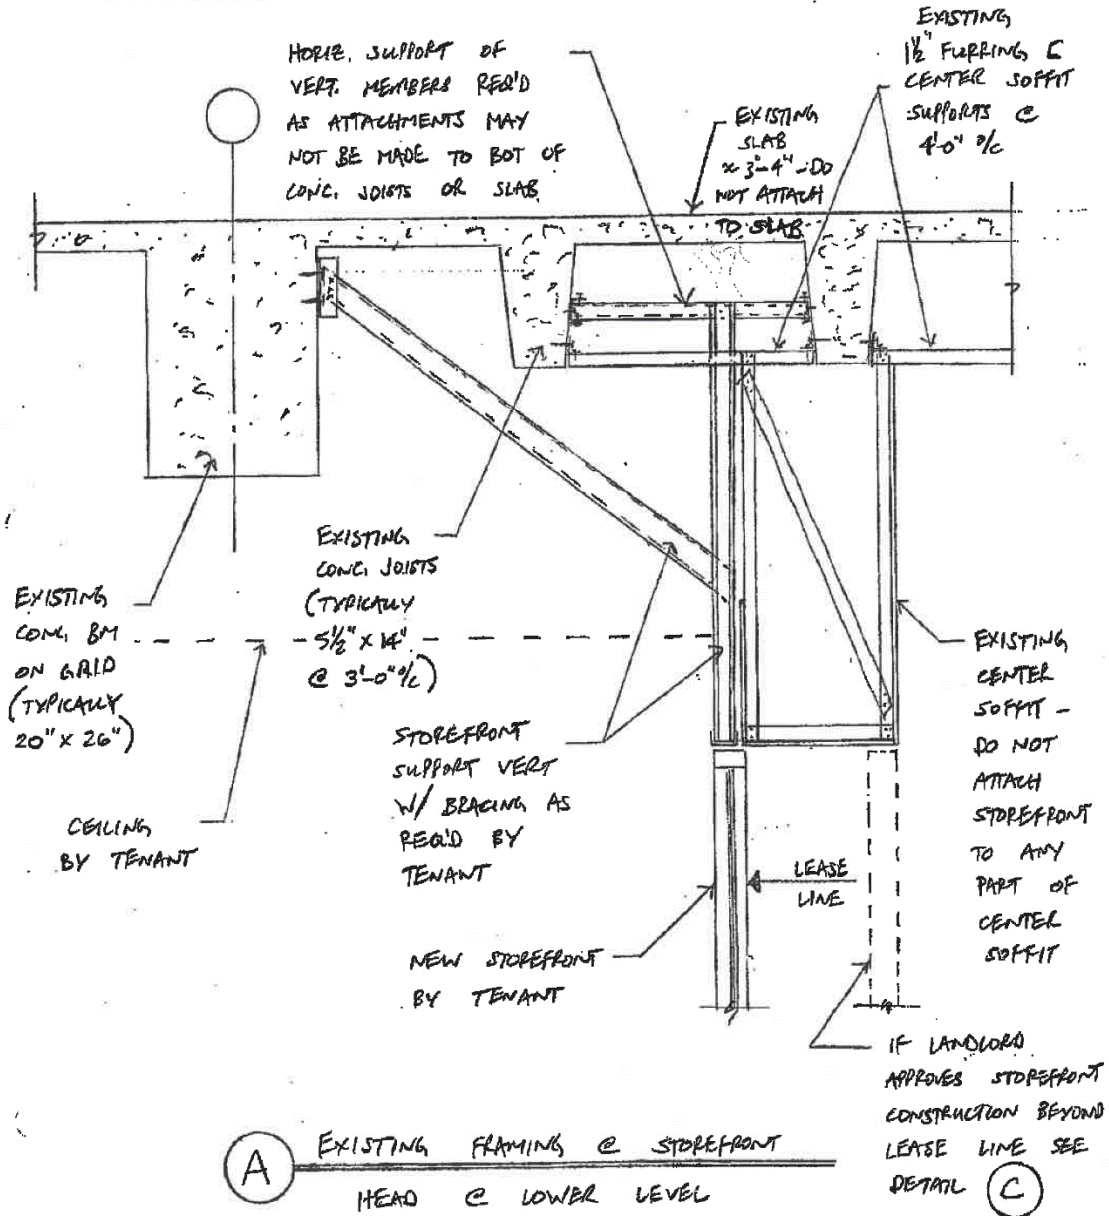 HORIZ. SUPPORT OF
VERT. MEMBERS REQ'D
AS ATTACHMENTS MAY
NOT BE MADE TO BOT OF
CONC. JOISTS OR SLAB.
EXISTING
SLAB
≈ 3"-4" - DO
NOT ATTACH
TO SLAB
EXISTING
1½" FURRING [
CENTER SOFFIT
SUPPORTS @
4'-0" o/c
EXISTING
CONC. BM
ON GRID
(TYPICALLY
20" X 26")
EXISTING
CONC. JOISTS
(TYPICALLY
5½" X 14"
@ 3'-0" o/c)
CEILING
BY TENANT
STOREFRONT
SUPPORT VERT
W/ BRACING AS
REQ'D BY
TENANT
NEW STOREFRONT
BY TENANT
LEASE
LINE
EXISTING
CENTER
SOFFIT -
DO NOT
ATTACH
STOREFRONT
TO ANY
PART OF
CENTER
SOFFIT
IF LANDLORD
APPROVES STOREFRONT
CONSTRUCTION BEYOND
LEASE LINE SEE
DETAIL C
A EXISTING FRAMING @ STOREFRONT
HEAD @ LOWER LEVEL